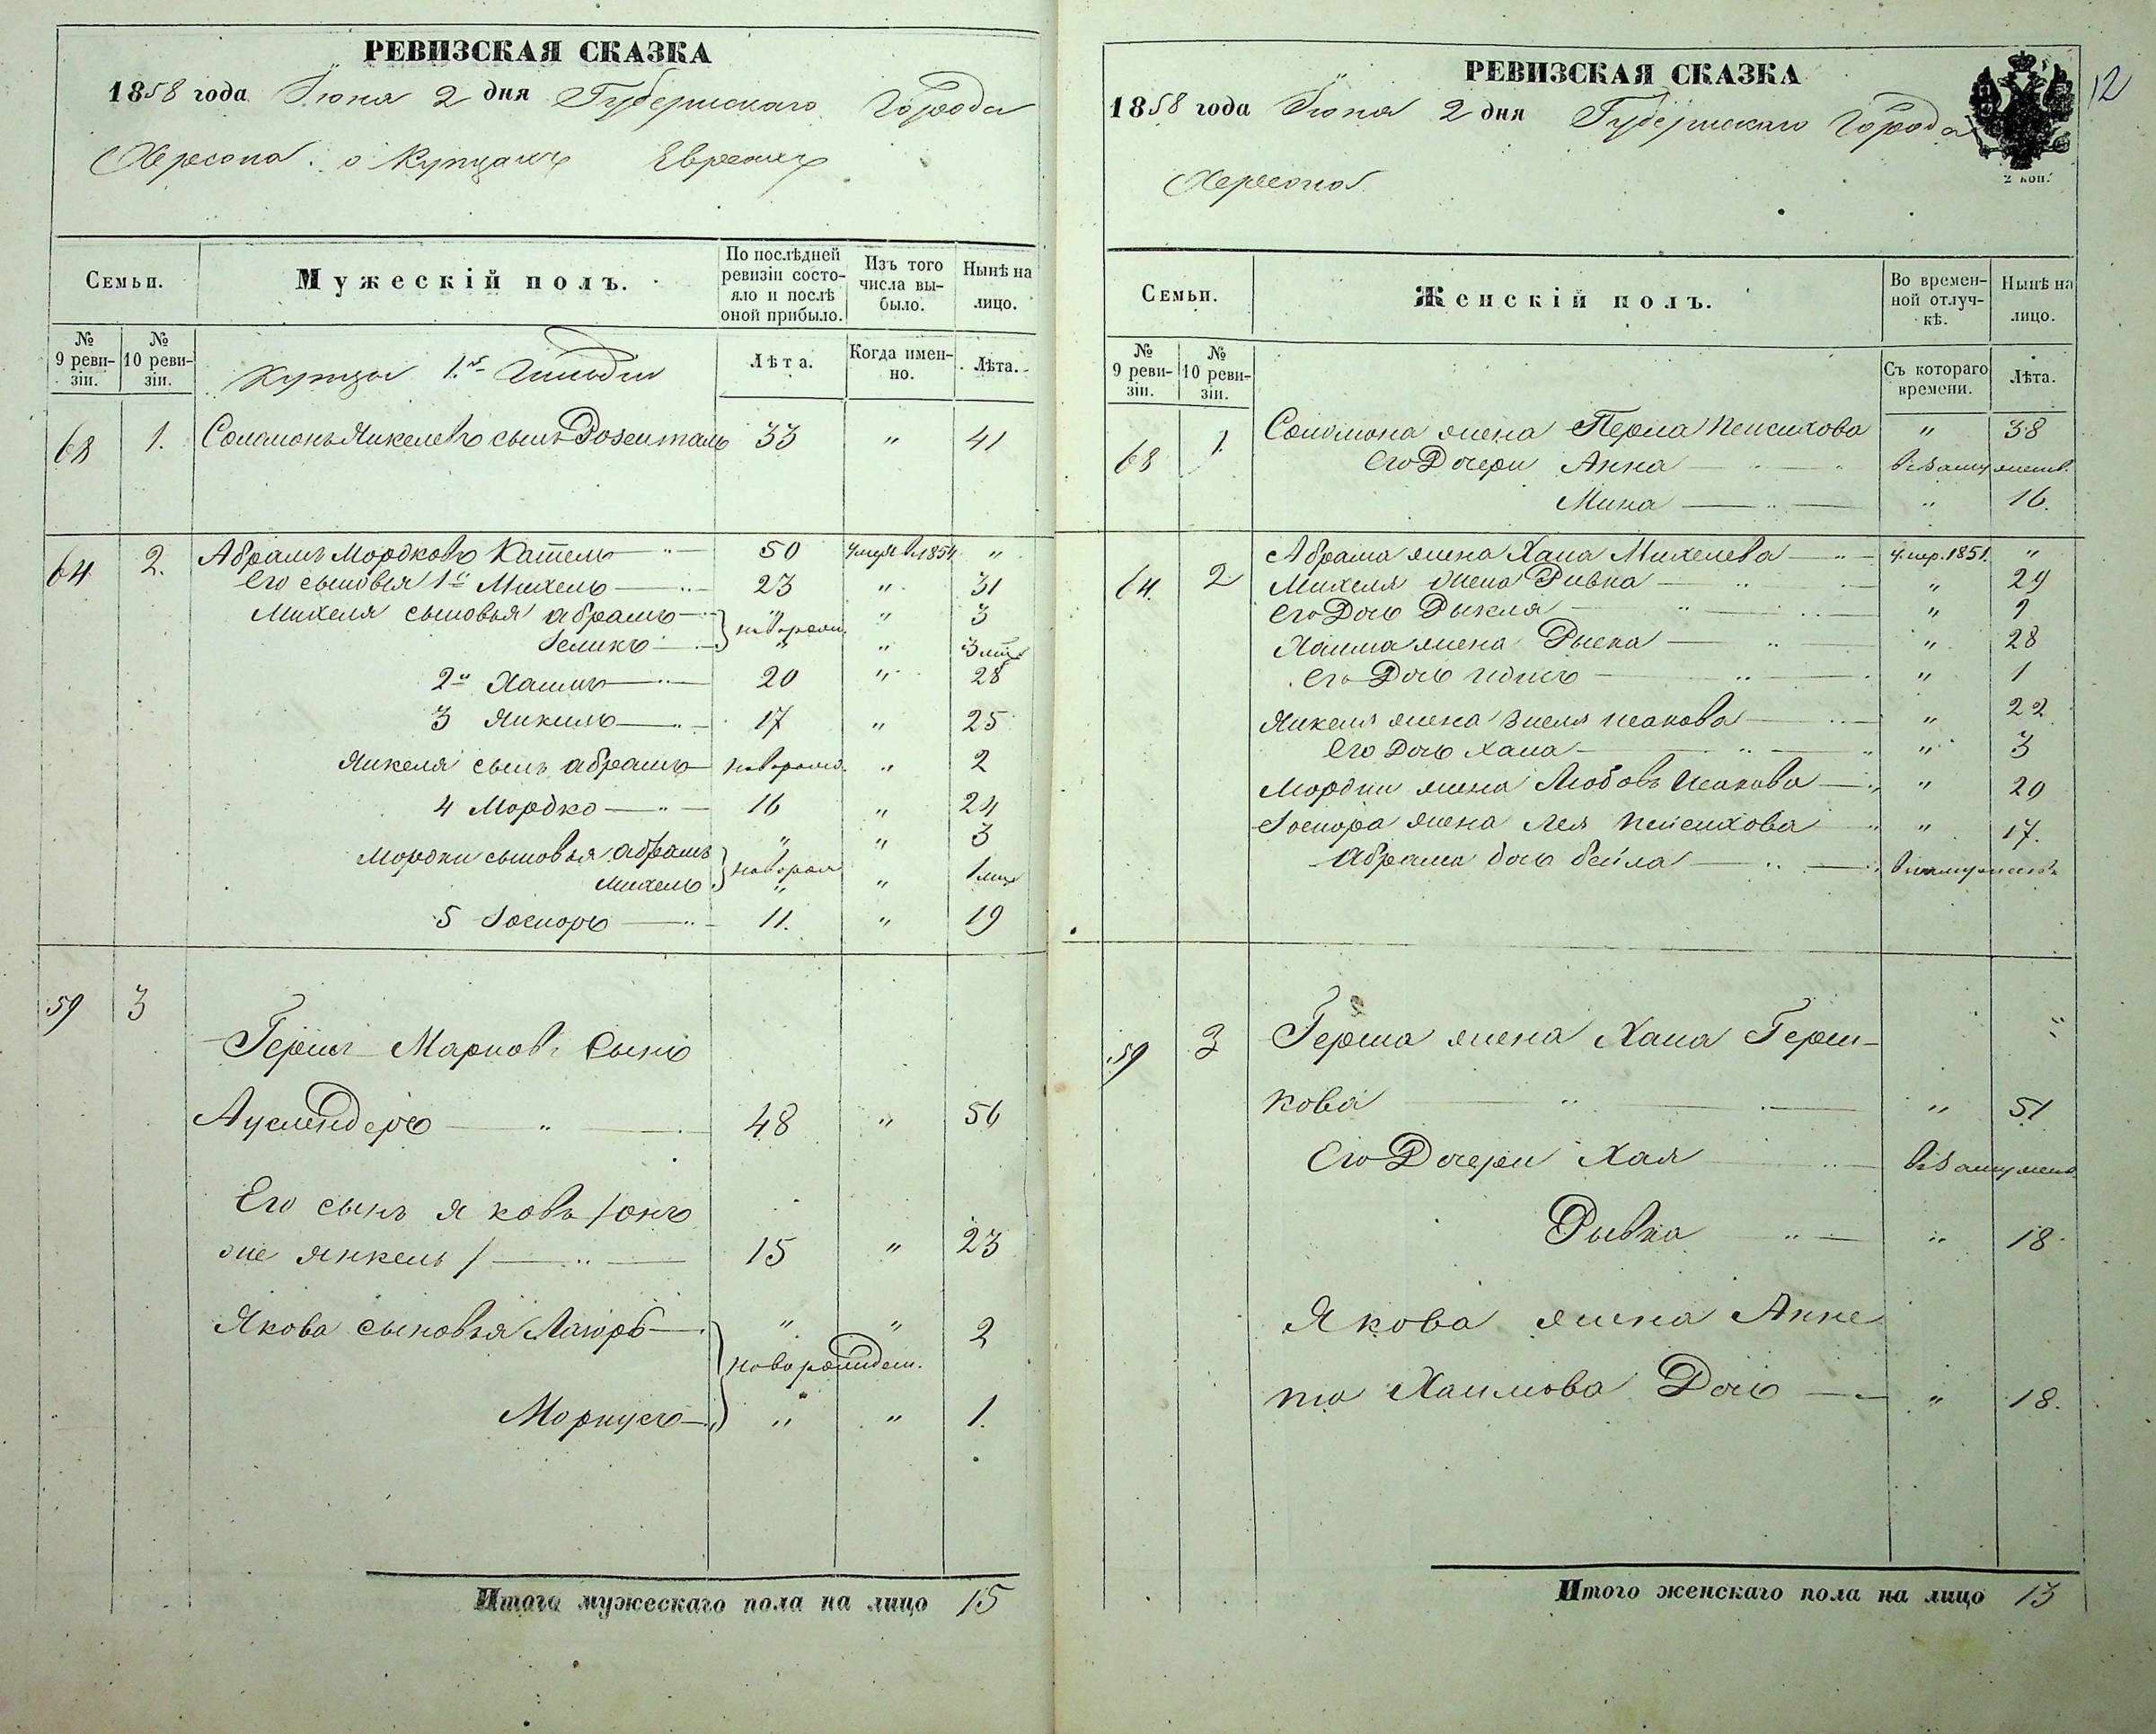 РЕВИЗСКАЯ СКАЗКА
1858 года Июня 2 дня Губернскаго Города
Херсона о Купцахъ Евреяхъ
Семьи.
Мужескій полъ.
По послѣдней ревизіи состояло и послѣ оной прибыло.
Изъ того числа выбыло.
Нынѣ на лицо.
№ 9 ревизіи.
№ 10 ревизіи.
Купцы 1й Гильдіи
Лѣта.
Когда именно.
Лѣта.
68 1. Соломонъ Янкелевъ сынъ Розенталь 33 " 41
64 2. Абрамъ Мордковъ 50 1854 "
Его сыновья 1й Михель 23 " 31
Михеля сыновья Абрамъ " " 3
Зеликъ новорожд. " " 3 мѣс
2й Хаимъ 20 " 28
3 Янкель 17 " 25
Янкеля сынъ Абрамъ новорожд. " 2
4 Мордко 16 " 24
Мордки сыновья Абрамъ " " 3
Михель новорож " " 1 мѣс
5 Іосіоръ 11. " 19
59 3
Гершъ Марковъ сынъ
Ауслендеръ 48 " 56
Его сынъ Яковъ /онъ
же Янкель/ 15 " 23
Якова сыновья Лазарь " " 2
новорожден.
Моркусъ " " 1.
Итого мужескаго пола на лицо 15
РЕВИЗСКАЯ СКАЗКА
12
1858 года Июня 2 дня Губернскаго Города
Херсона
2 коп.
Семьи.
Женскій полъ.
Во временной отлучкѣ.
Нынѣ на лицо.
№ 9 ревизіи.
№ 10 ревизіи.
Съ котораго времени.
Лѣта.
68 1. Соломона жена Перла Пейсихова " 38
Его Дочери Анна въ замужест.
Мина " 16.
Абрама жена Хана Михелева умер. 1851. "
64. 2 Михеля жена Ривка " 29
Его Дочь Рыкля " 9
Хаима жена Рыска " 28
Его Дочь " 1
Янкеля жена Исакова " 22
Его Дочь Хана " 3
Мордки жена Любовь Исакова " 20
Іосіора жена Лея Пейсихова " 17.
Абрама дочь Бейла въ замужествѣ
59 3 Герша жена Хана Герш-
кова " 51
Его Дочери Хая въ замужест.
Рывка " 18
Якова жена Анне
та Хаимова Дочь " 18.
Итого женскаго пола на лицо 13